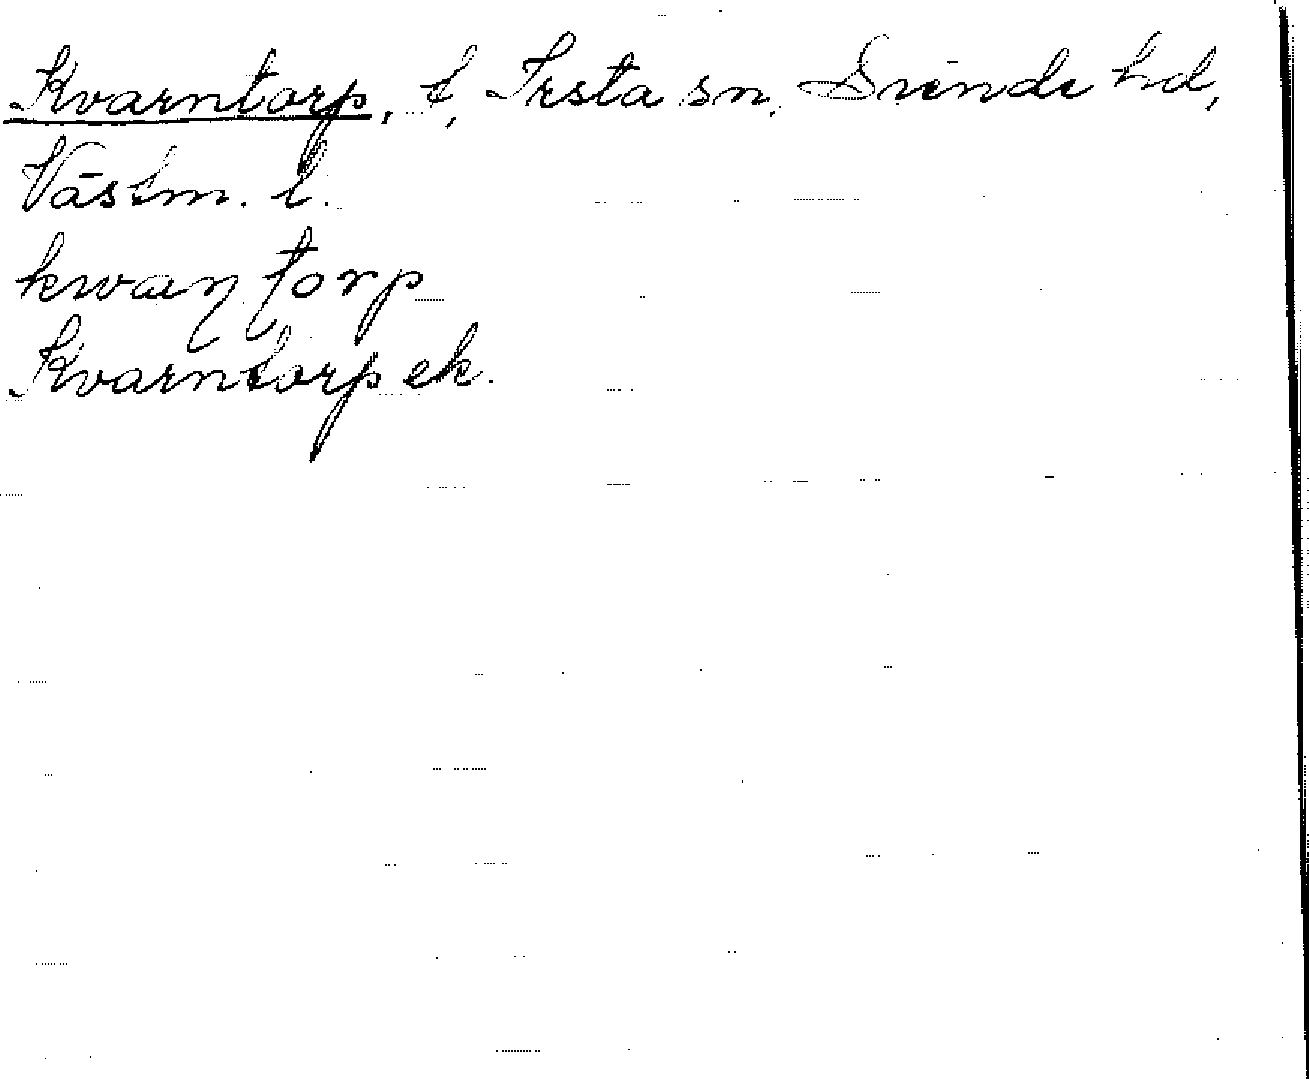 Kvarntorp, t, Irsta sn, Siende hd,
Västm. l.
kwaɳ ʈorp
Kvarntorp ek.